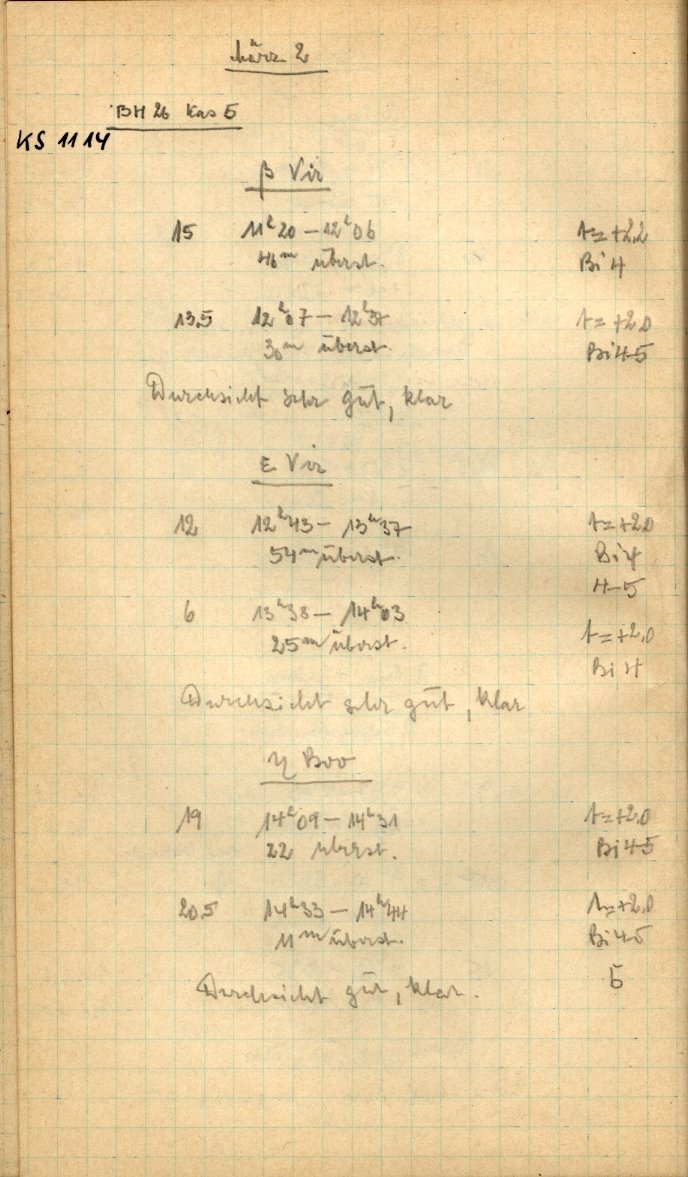 März 2
BH 26 Kas 5
KS 1114
β Vir
15 11ʰ20 – 12ʰ06 t = +2.2
46ᵐ überst. Bi 4
13.5 12ʰ07 – 12ʰ37 t = +2.0
30ᵐ überst. Bi 4-5
Durchsicht sehr gut, klar
ε Vir
12 12ʰ43 – 13ʰ37 t = +2.0
54ᵐ überst. Bi 4
4-5
6 13ʰ38 – 14ʰ03
25ᵐ überst. t = +2.0
Bi 4
Durchsicht sehr gut, klar
η Boo
19 14ʰ09 – 14ʰ31 t = +2.0
22 überst. Bi 4-5
20.5 14ʰ33 – 14ʰ44 t = +2.0
11ᵐ überst. Bi 4-5
5
Durchsicht gut, klar.